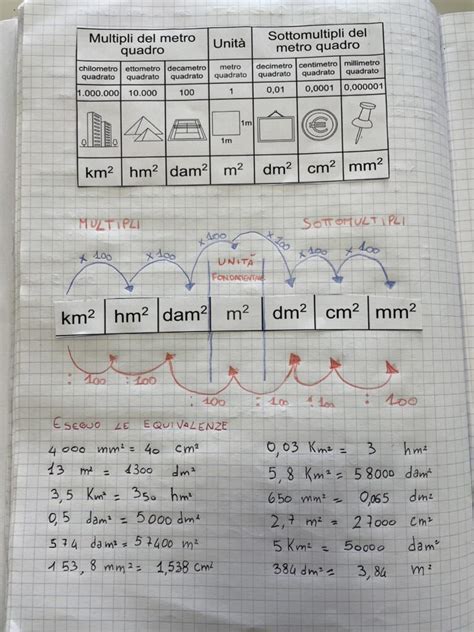 Multipli del metro quadro Unità Sottomultipli del metro quadro
chilometro quadrato ettometro quadrato decametro quadrato metro quadrato decimetro quadrato centimetro quadrato millimetro quadrato
1.000.000 10.000 100 1 0,01 0,0001 0,000001
1m
1m
km² hm² dam² m² dm² cm² mm²
MULTIPLI SOTTOMULTIPLI
x 100 x 100 x 100 x 100 x 100 x 100
UNITÀ FONDAMENTALE
km² hm² dam² m² dm² cm² mm²
: 100 : 100 : 100 : 100 : 100 : 100
ESEGUO LE EQUIVALENZE
4 000 mm² = 40 cm² 0,03 Km² = 3 hm²
13 m² = 1300 dm² 5,8 Km² = 58000 dam²
3,5 Km² = 350 hm² 650 mm² = 0,065 dm²
0,5 dam² = 5000 dm² 2,7 m² = 27000 cm²
574 dam² = 57400 m² 5 Km² = 50000 dam²
153,8 mm² = 1,538 cm² 384 dm² = 3,84 m²